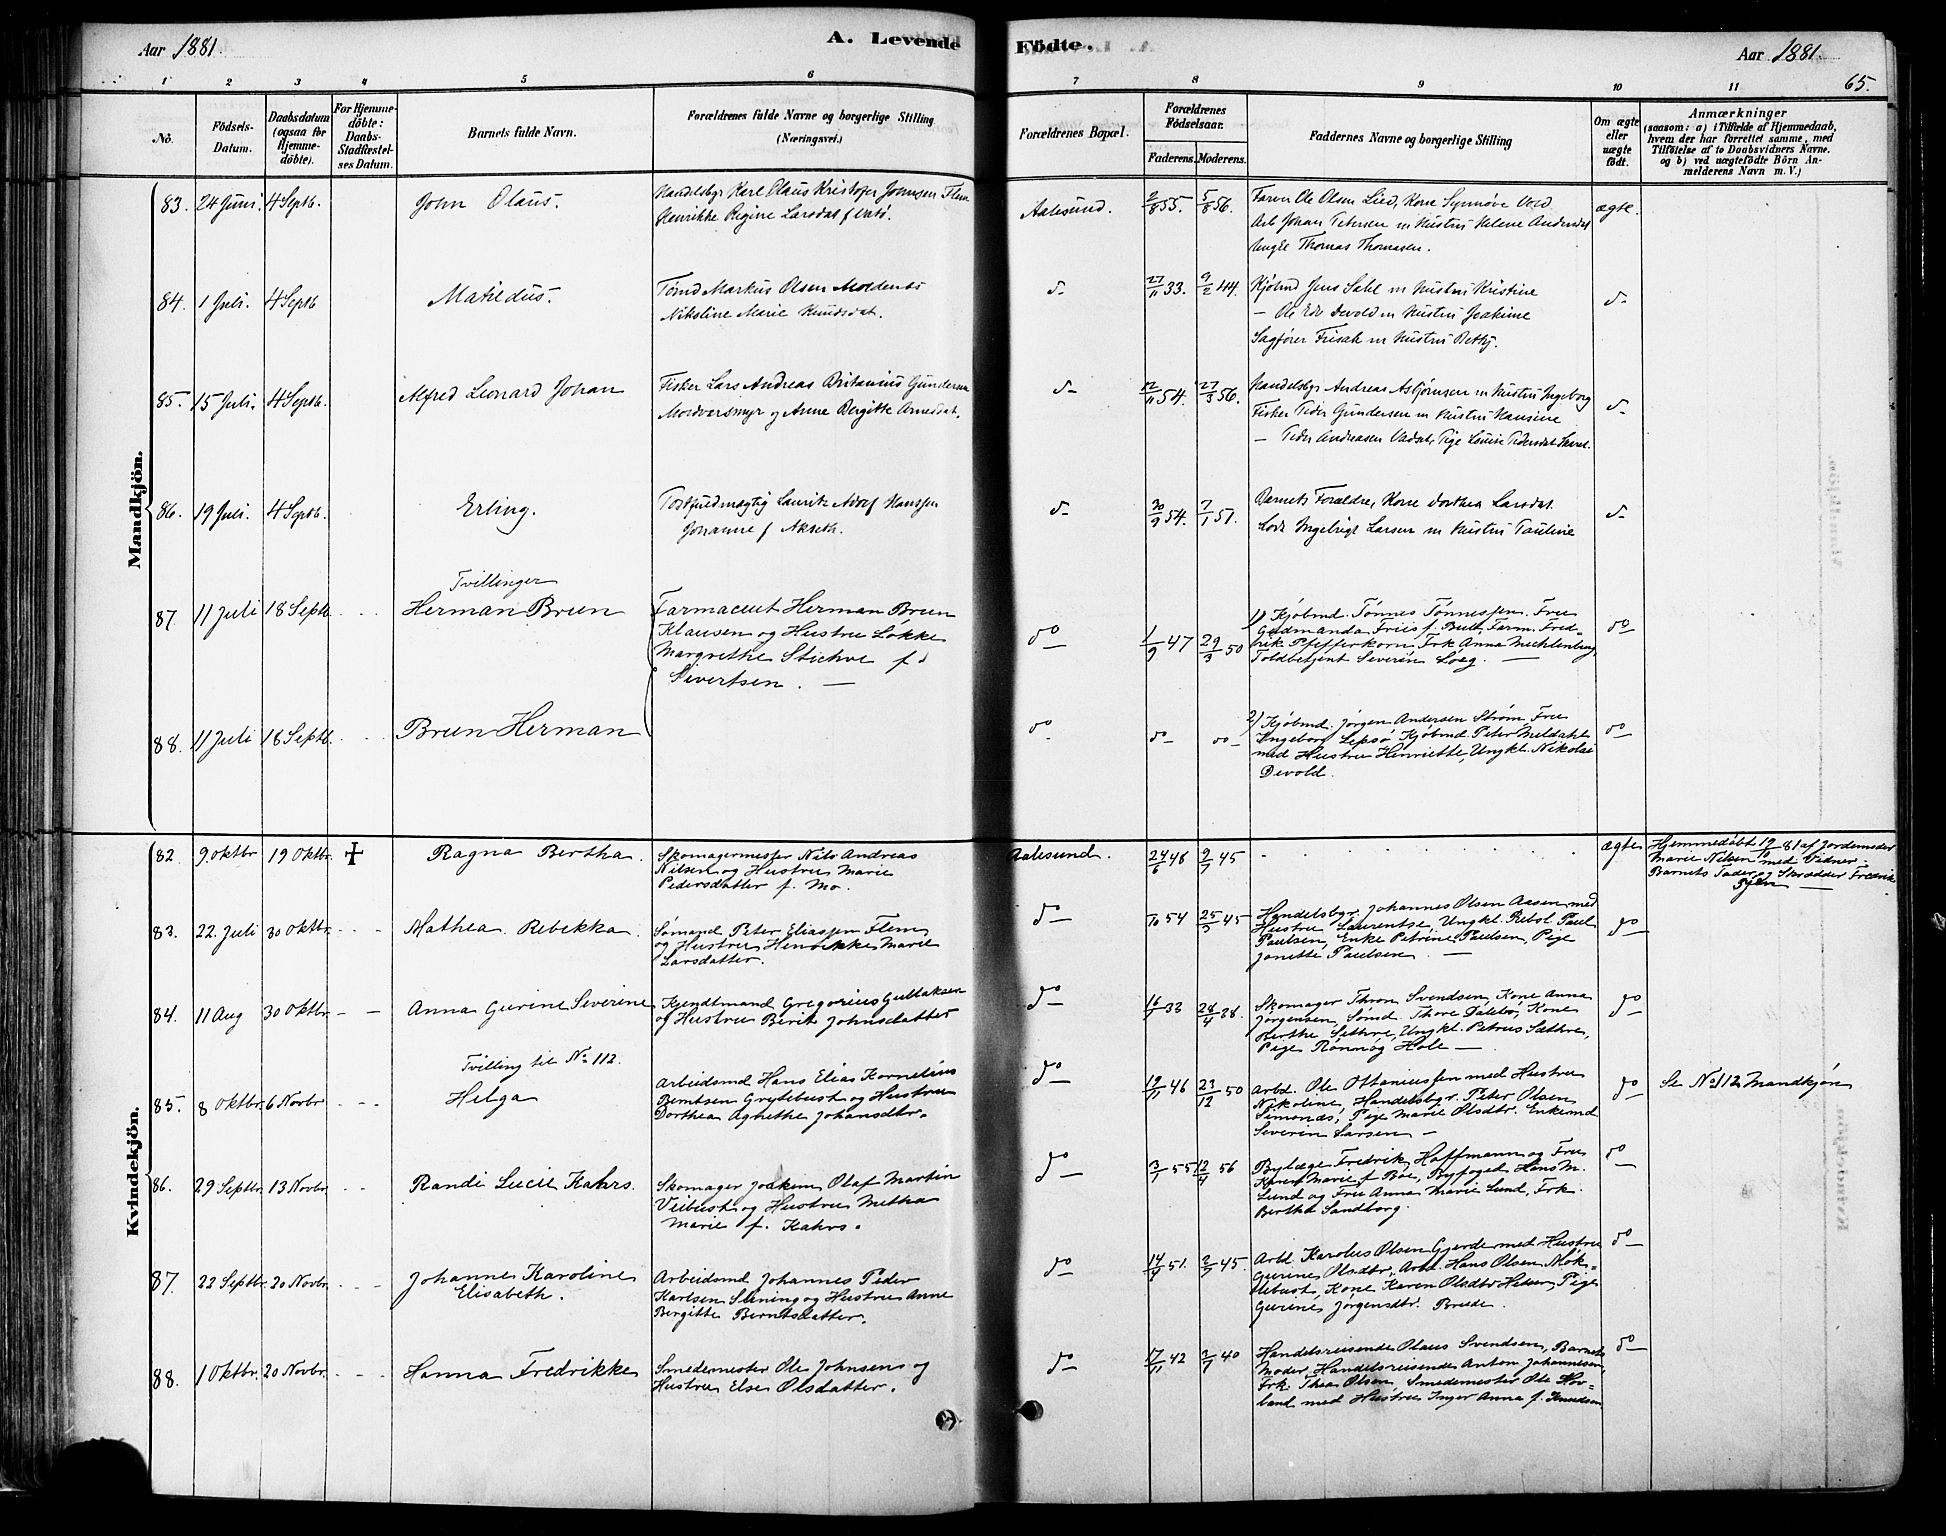 Aar 1881.
A. Levende Födte.
Aar 1881.
65.
1 2 3 4 5 6 7 8 9 10 11
No.
Födsels-Datum.
Daabsdatum (ogsaa før Hjemme-döbte).
For Hjemme-döbte: Daabs-Stadfæstel-ses Datum.
Barnets fulde Navn.
Forældrenes fulde Navne og borgerlige Stilling (Næringsvei.)
Forældrenes Bopæl.
Forældrenes Födselsaar.
Faderens. Moderens.
Faddernes Navne og borgerlige Stilling
Om ægte eller uægte födt.
Anmærkninger
(saasom: a) i Tilfælde af Hjemmedaab, hvem der har forrettet samme, med Tilföielse af to Daabsvidners Navne. og b) ved uægtefödte Börn Anmelderens Navn m. V.)
Mandkjön.
83. 24 Juni. 4 Septb. John Olaus.
Handelsbgr Karl Olaus Kristofer Johnsen Flem
Henrikke Regine Larsdat f
Aalesund. 2/8 55. 5/8 56.
Faren Ole Olsen Lied, Kone Synnøve Vold
Arb Johan Petersen m Hustru Helene Andersdat
Ungk Thomas Thomasen.
ægte.
84. 1 Juli. 4 Septb Matildus.
Tømd Markus Olsen Moldenes
Nikoline Marie Knudsdat.
d- 27/11 33. 9/2 44.
Kjøbmd Jens Sahl m Hustru Kristine
— Ole Devold m Hustru Joakime
Sagfører Frisak m Hustru Bethy.
d-
85. 15 Juli. 4 Septb. Alfred Leonard Johan
Fisker Lars Andreas Britanius Gundersen
Moldversmyr og Anne Bergitte Arnesdat.
d- 12/11 54. 27/3 56.
Handelsbgr Andreas Asbjørnsen m Hustru Ingeborg
Fisker Peder Gundersen m Hustru Hansine
— Peder Andreasen Vadset, Pige Louise Pedersdat
d-
86. 19 Juli. 4 Septb. Erling.
Postfuldmægtig Lauritz Adolf Hanssen
Johanne f Akseth.
d- 30/9 54. 7/1 51.
Barnets Forældre, Kone Dorthea Larsdat.
Lods Ingebrigt Larsen m Hustru Pauline
d-
Tvillinger
87. 11 Juli 18 Septb. - - Herman Brun
Farmaceut Herman Brun
Klausen og Hustru Løkke
Margrethe Stichve f.
Sivertsen. —
do 1/9 47 29/3 50
1) Kjøbmd. Tønnes Tønnessen. Frue
Gudmanda Friis f. Bull, Farm. Fred-
rik Pfefferkorn, Frk Anna Mechlenburg,
Toldbetjent Severin Loeg. —
do
88. 11 Juli 18 Septb. - - Brun Herman
do do do
2) Kjøbmd. Jørgen Andersen Strøm, Frue
Ingeborg Lepsø Kjøbmd Peter Meldahl
med Hustru Henriette, Ungkl. Nikolai
Devold.
do
Kvindekjön.
82. 9. oktbr 19 Oktbr. + Ragna Bertha.
Skomagermester Nils Andreas
Nilsen og Hustru Marie
Pedersdatter f. Mo.
Aalesund. 24/6 48 9/7 45 - - -
ægte
Hjemmedøbt 12/10 81 af Jordemoder
Marie Nilsen med Vidner
Barnets Fader og Skrædder Fredrik
83. 22. Juli 30 oktbr. - - Mathea Rebekka.
Sømand Peter Eliassen Flem
og Hustru Henrikke Marie
Larsdatter.
do /10 54 25/3 45
Handelsbgr. Johannes Olsen Aasen med
Hustru Laurentse, Ungkl. Rebsl. Paul
Paulsen, Enke Petrine Paulsen, Pige
Janette Paulsen. —
do
84. 11 Aug 30 oktbr. - - Anna Gurine Severine
Kjendtmand Gregorius Gullaksen
og Hustru Berit Johnsdatter
do 16/1 33 28/4 28.
Skomager Thron Svendsen, Kone Anna
Jørgensen, Sømd. Thore Dalebø, Kone
Berthe Sethre, Ungkl. Petrus Sæthre,
Pige Rønnøg Hole —
do
Tvilling til No 112.
85. 8 oktbr. 6 Novbr - - Helga
Arbeidsmd Hans Elias Kornelius
Berntsen Grytebust og Hustru
Dorthea Agnethe Johansdtr.
do 19/11 46 23/12 50
Arbd. Ole Ottaniussen med Hustru
Nikoline, Handelsbgr. Peter Olsen
Simonæs, Pige Marie Olsdtr. Enkemd
Severin Larsen —
do
Se No 112 Mandkjøn
86. 29 Septbr. 13 Novbr. - - Randi Lucie Kahrs.
Skomager Joakim Olaf Martin
Viebust og Hustru Metha
Marie f. Kahrs.
do 3/1 55 12/4 56
Bylæge Fredrik Hoffmann og Frue
Karen Marie f. Bøe, Byfoged Hans M.
Lund og Frue Anna Marie Lund, Frk.
Bertha Sandborg.
do
87. 22 Septbr. 20 Novbr. - - Johanne Karoline
Elisabeth.
Arbeidsmd Johannes Peder
Karlsen Slining og Hustru Anne
Bergitte Berntsdatter.
do 14/9 51. 2/7 45.
Arbd. Karolus Olsen Gjerde med Hustru
Gurine Olsdtr., Arbd. Hans Olsen Mok-
lebust, Kone Karen Olsdtr Hessen, Pige
Gurine Jørgensdtr. Brude.
do
88. 1 Oktbr. 20 Novbr. - - Hanna Fredrikke
Smedemester Ole Johnsens og
Hustru Else Olsdatter.
do 17/11 42 3/7 40
Handelsreisende Olaus Svendsen, Barnets
Moder Handelsreisende Anton Johannesen,
Frk. Thea Olsen, Smedemester Ole Hov-
land med Hustru Inger Anna f. Knudsen
do